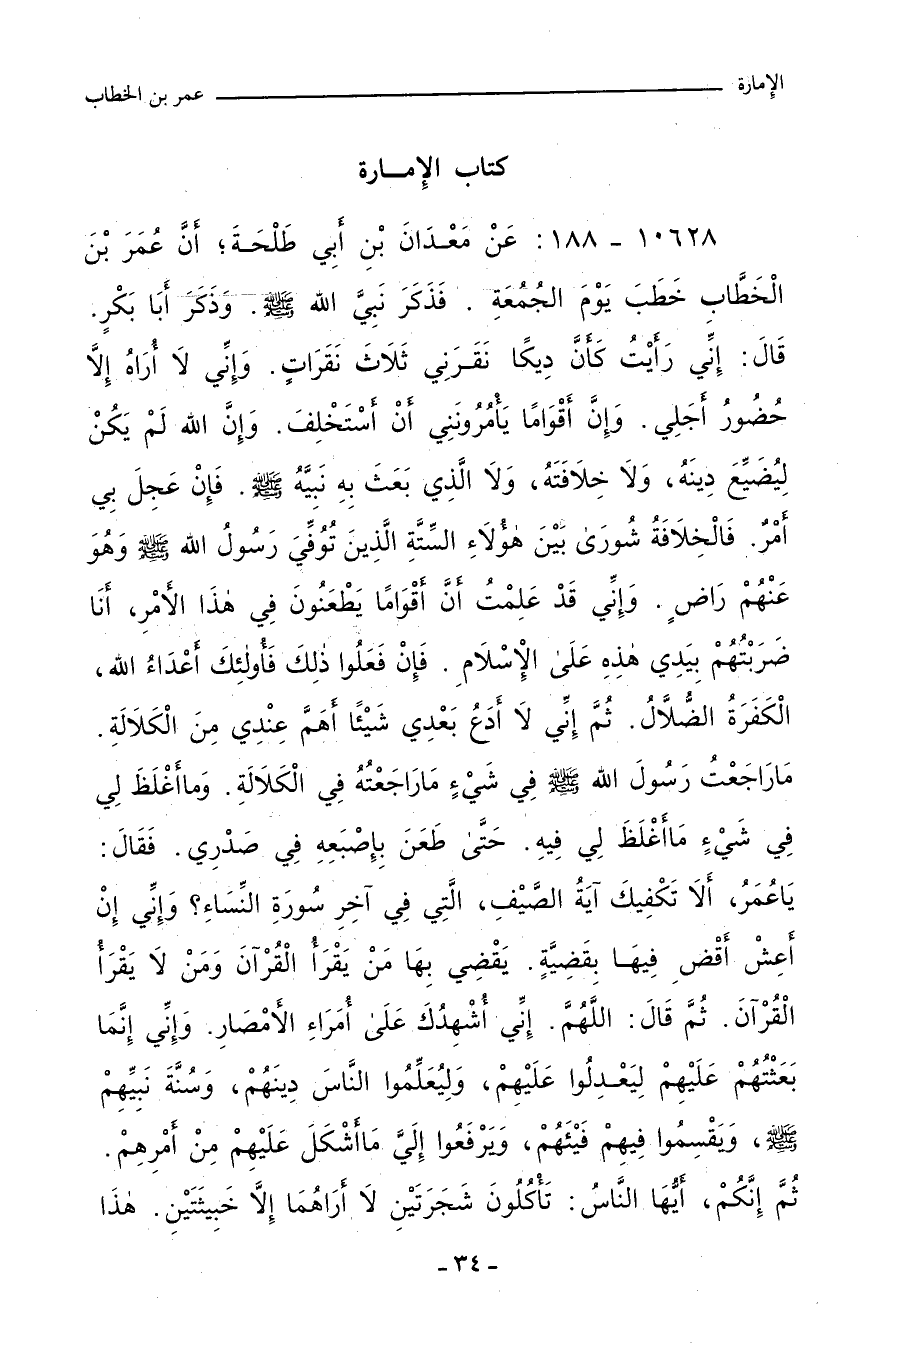 الإمارة ــــــــــــ عمر بن الخطاب
كتاب الإمـــارة
١٠٦٢٨ ـ ١٨٨ : عَنْ مَعْـدَانَ بْنِ أَبِي طَلْحَـةَ؛ أَنَّ عُمَرَ بْنَ
الْخَطَّابِ خَطَبَ يَوْمَ الجُمُعَةِ . فَذَكَرَ نَبِيَّ الله ﷺ. وَذَكَرَ أَبَا بَكْرٍ.
قَالَ: إِنِّي رَأَيْتُ كَأَنَّ دِيكًا نَقَـرَنِي ثَلَاثَ نَقَرَاتٍ. وَإِنِّي لَا أُرَاهُ إِلَّا
حُضُورُ أَجَلِي. وَإِنَّ أَقْوَامًا يَأْمُرُونَنِي أَنْ أَسْتَخْلِفَ. وَإِنَّ الله لَمْ يَكُنْ
لِيُضَيِّعَ دِينَهُ، وَلَا خِلَافَتَهُ، وَلَا الَّذِي بَعَثَ بِهِ نَبِيَّهُ ﷺ. فَإِنْ عَجِلَ بِي
أَمْرٌ. فَالْخِلَافَةُ شُورَىٰ بَيْنَ هٰؤُلَاءِ السِّتَّةِ الَّذِينَ تُوُفِّيَ رَسُولُ الله ﷺ وَهُوَ
عَنْهُمْ رَاضٍ . وَإِنِّي قَدْ عَلِمْتُ أَنَّ أَقْوَامًا يَطْعَنُونَ فِي هٰذَا الأَمْرِ، أَنَا
ضَرَبْتُهُمْ بِيَدِي هٰذِهِ عَلَىٰ الْإِسْلَامِ . فَإِنْ فَعَلُوا ذٰلِكَ فَأُولٰئِكَ أَعْدَاءُ الله ،
الْكَفَرَةُ الضُّلَّالُ. ثُمَّ إِنِّي لَا أَدَعُ بَعْدِي شَيْئًا أَهَمَّ عِنْدِي مِنَ الْكَلَالَةِ.
مَارَاجَعْتُ رَسُولَ الله ﷺ فِي شَيْءٍ مَارَاجَعْتُهُ فِي الْكَلَالَةِ. وَماأَغْلَظَ لِي
فِي شَيْءٍ مَاأَغْلَظَ لِي فِيهِ. حَتَّىٰ طَعَنَ بِإِصْبَعِهِ فِي صَدْرِي. فَقَالَ:
يَاعُمَرُ، أَلَا تَكْفِيكَ آيَةُ الصَّيْفِ، الَّتِي فِي آخِرِ سُورَةِ النِّسَاءِ؟ وَإِنِّي إِنْ
أَعِشْ أَقْضِ فِيهَـا بِقَضِيَّةٍ. يَقْضِي بِهَا مَنْ يَقْرَأُ الْقُرْآنَ وَمَنْ لَا يَقْرَأُ
الْقُرْآنَ. ثُمَّ قَالَ: اللَّهُمَّ. إِنِّي أُشْهِدُكَ عَلَىٰ أُمَرَاءِ الأَمْصَارِ. وَإِنِّي إِنَّمَا
بَعَثْتُهُمْ عَلَيْهِمْ لِيَعْـدِلُوا عَلَيْهِمْ، وَلِيُعَلِّمُوا النَّاسَ دِينَهُمْ، وَسُنَّةَ نَبِيِّهِمْ
ﷺ، وَيَقْسِمُوا فِيهِمْ فَيْئَهُمْ، وَيَرْفَعُوا إِلَيَّ مَاأَشْكَلَ عَلَيْهِمْ مِنْ أَمْرِهِمْ.
ثُمَّ إِنَّكُمْ، أَيُّهَا النَّاسُ: تَأْكُلُونَ شَجَرَتَيْنِ لَا أَرَاهُمَا إِلَّا خَبِيثَتَيْنِ. هٰذَا
ـ ٣٤ ـ